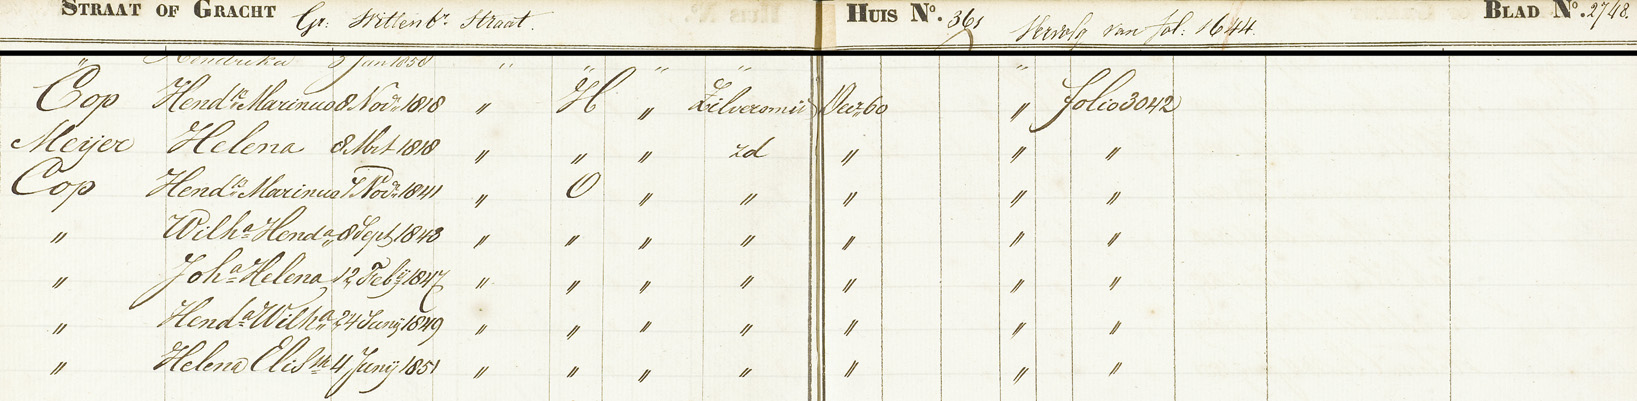 STRAAT OF GRACHT Gr: Wittenbr. Straat. HUIS No. 361 Vervolg van fol: 1644. BLAD No. 2748.
" Hendrika 2 Jan 1850 " " " " "
Cop Hendk. Marinus 8 Novr. 1818 " H " Zilversmid Dec. 60 " folio 3042
Meijer Helena 8 Mrt 1818 " " " zd " " "
Cop Hendk. Marinus 7 Novr. 1841 " O " " " " "
" Wilha. Henda. 8 Sept 1843 " " " " " " "
" Joha. Helena 12 Feby 1847 " " " " " " "
" Henda. Wilha. 24 Junij 1849 " " " " " " "
" Helena Elisth. 4 Junij 1851 " " " " " " "